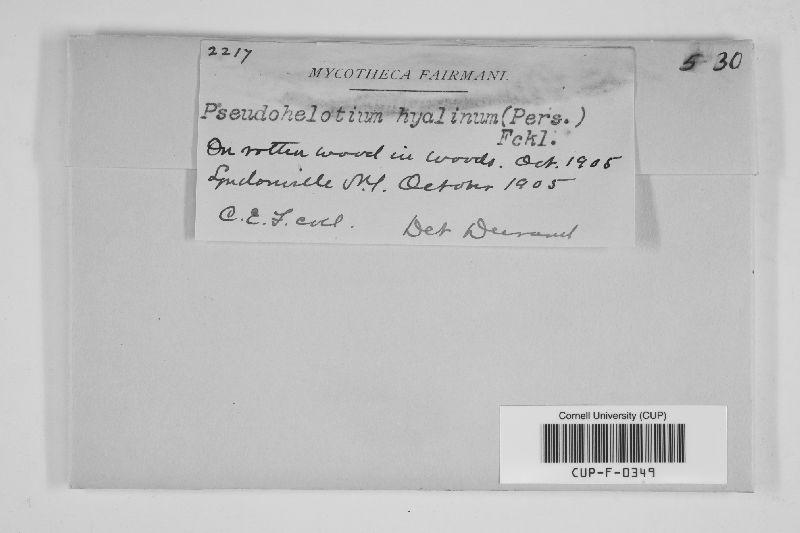 2217
5 30
MYCOTHECA FAIRMANI.
Pseudohelotium hyalinum (Pers.)
Fckl.
On rotten wood in woods. Oct. 1905
Lyndonville N.Y. October 1905
C. E. F. coll.
Det Durand
Cornell University (CUP)
CUP-F-0349